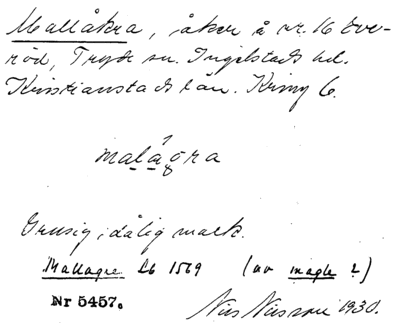 Mallåkra, åker å nr. 16 Eve-
röd, Tryde sn. Ingelstads hd.
Kristianstads län. Kring 6.
malágra
Grusig, dålig mark.
Mallagre Lb 1569 (av magle ?)
Nr 5457.
Nils Nilsson 1930.